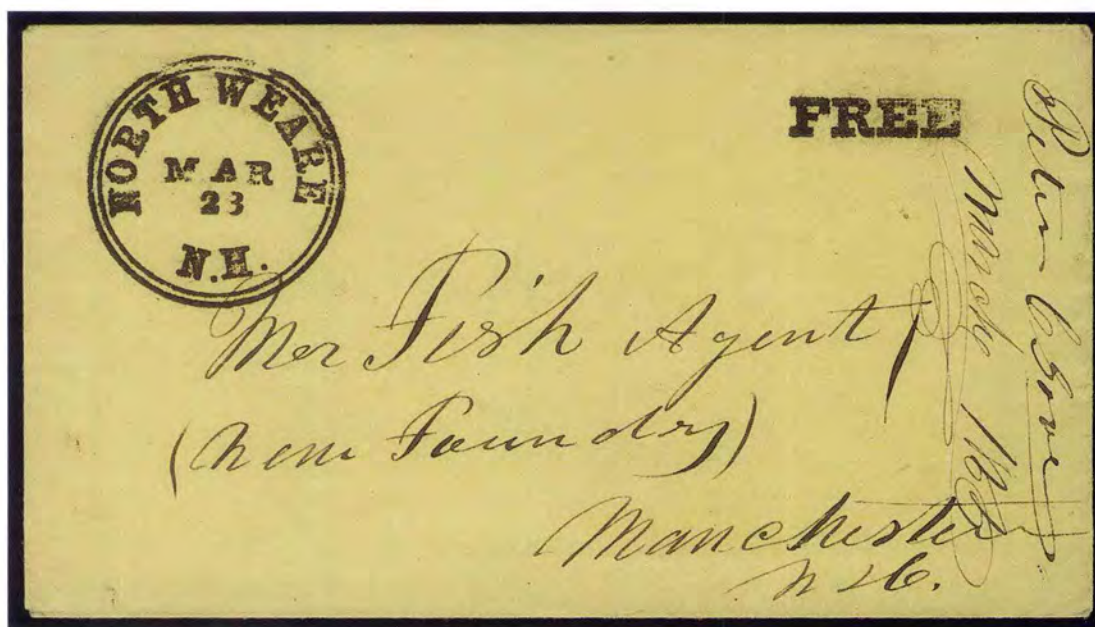 NORTH WEARE
MAR
23
N.H.
FREE
Mr Fish Agent
(New Foundry)
Manchester
N H.
Gove
March